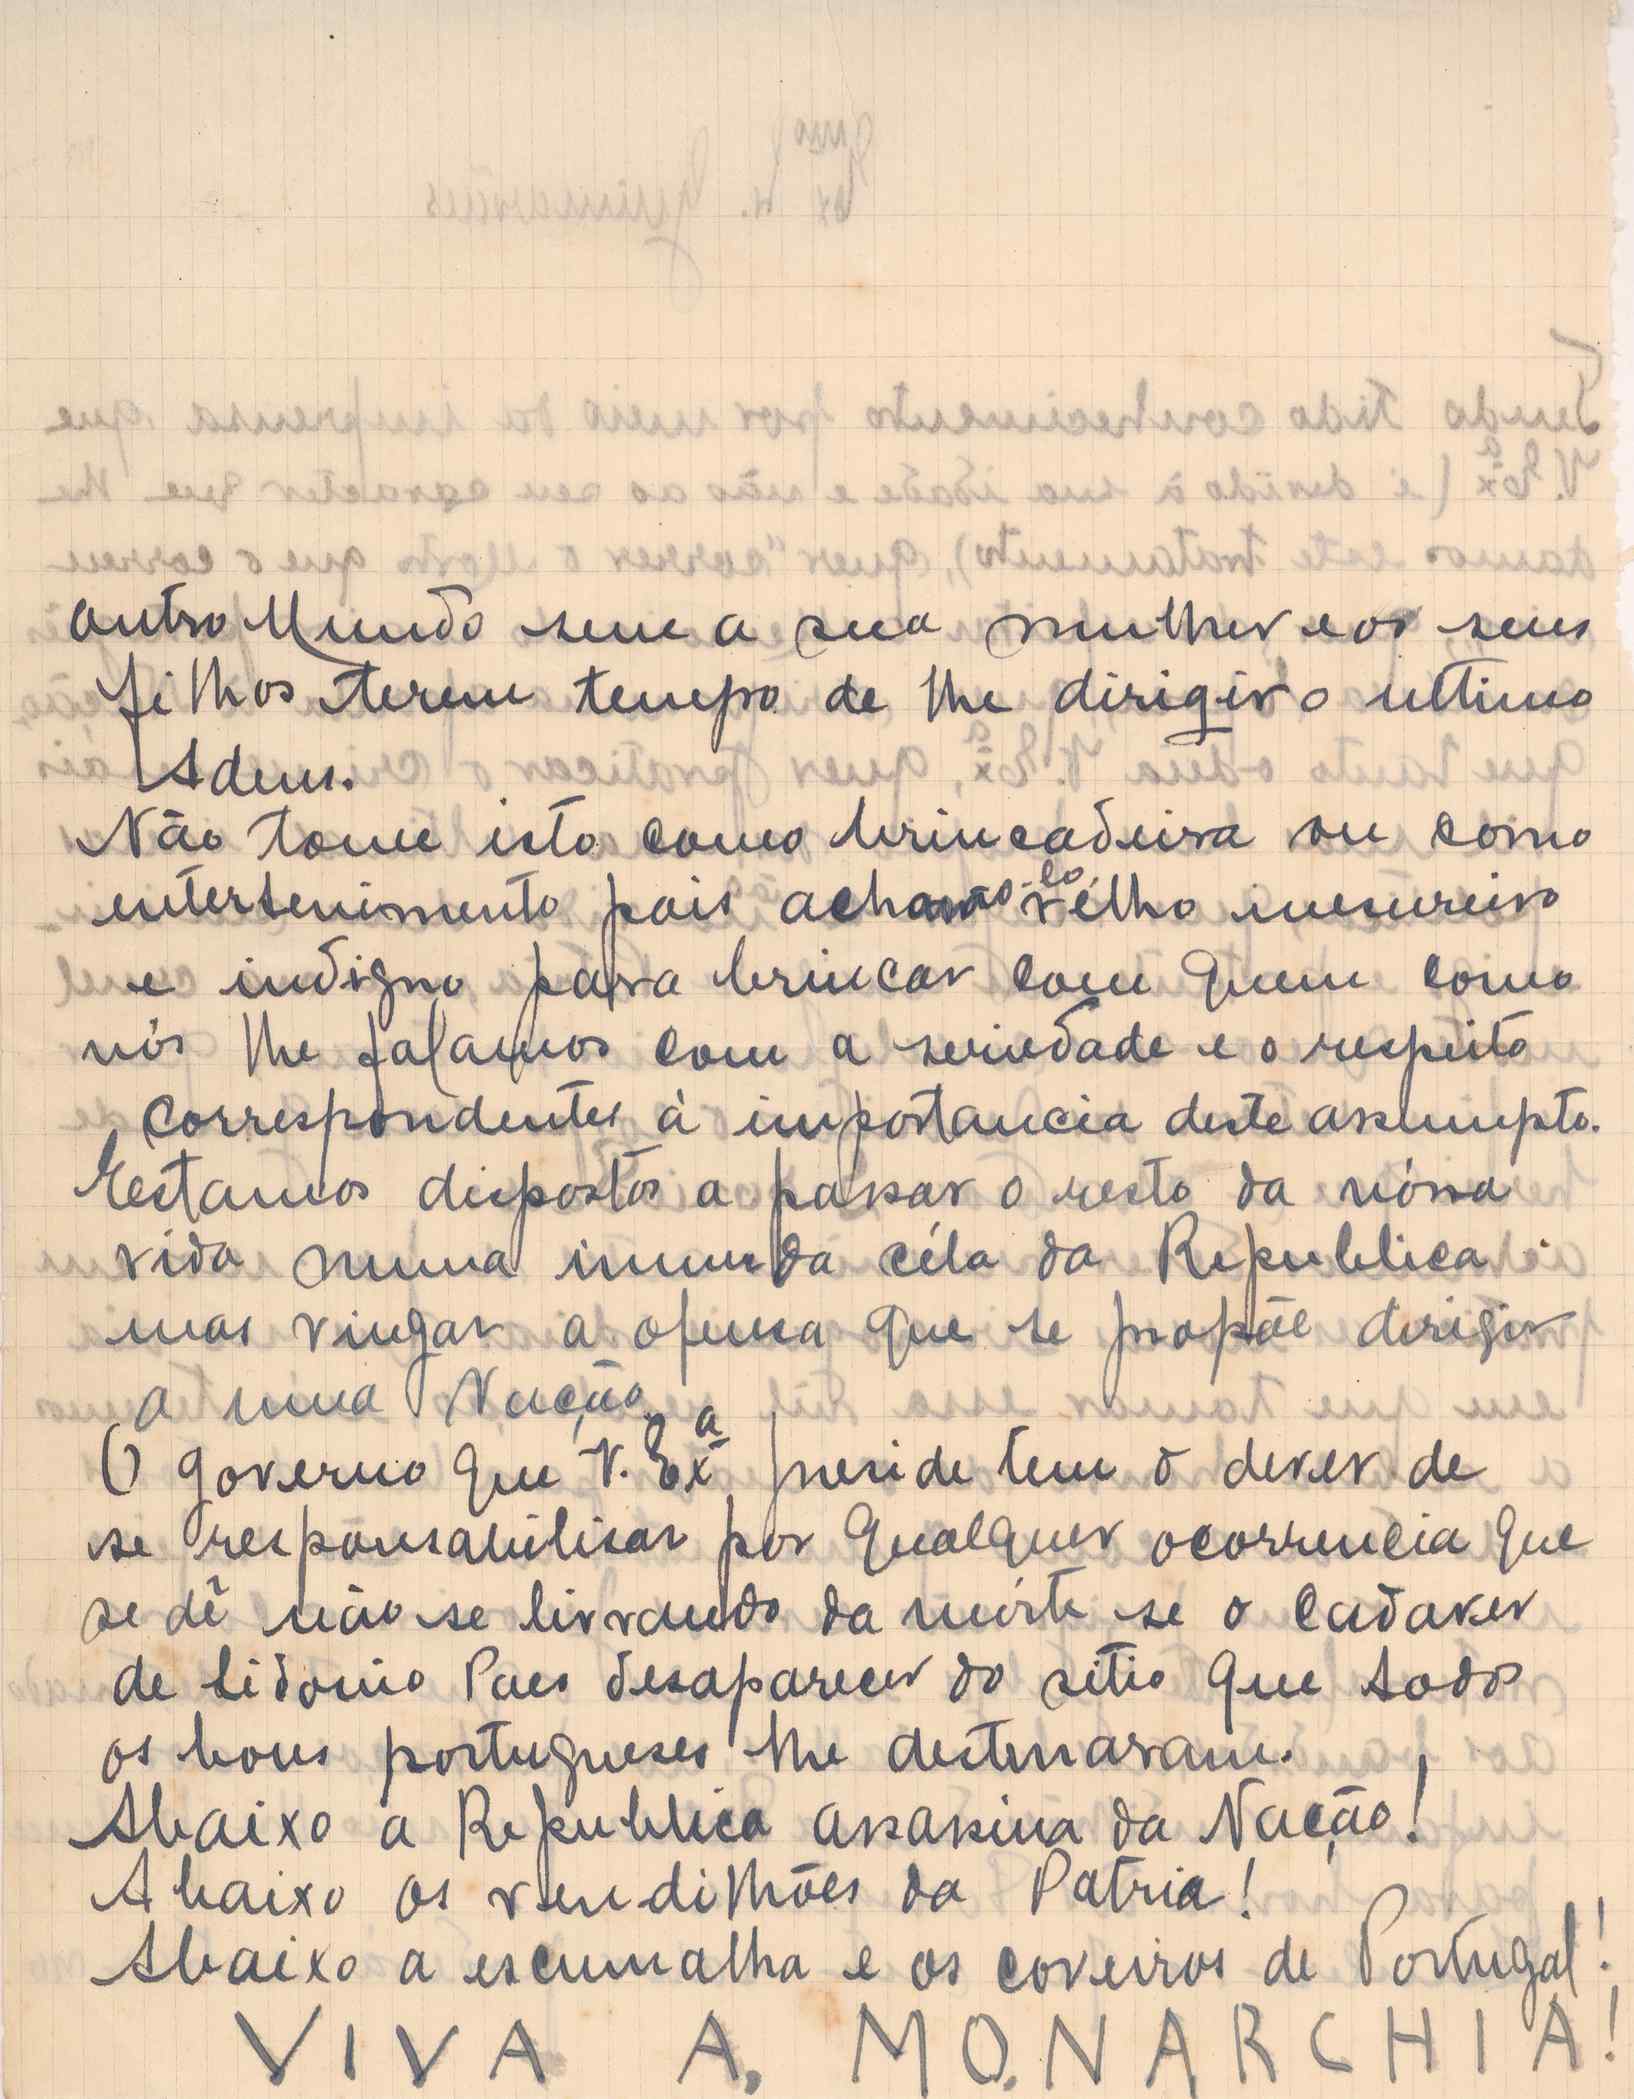 outro Mundo sem a sua mulher e os seus
filhos terem tempo de lhe dirigir o ultimo
Adeus.
Não tome isto como brincadeira ou como
entertenimento pois achamo-lo vélho mesureiro
e indigno para brincar com quem como
nós lhe falamos com a seriedade e o respeito
correspondentes á importancia deste assumpto.
Estamos dispostos a passar o resto da nóssa
vida numa imunda céla da Republica
mas vingar a ofensa que se propõe dirigir
a uma Nação.
O governo que V. Exª preside tem o dever de
se responsabilisar por qualquer ocorrencia que
se dê não se livrando da mórte se o cadaver
de Sidonio Paes desaparecer do sitio que todos
os bons portugueses lhe destinaram.
Abaixo a Republica assassina da Nação!
Abaixo os vendilhões da Patria!
Abaixo a escumalha e os coveiros de Portugal!
VIVA A MONARCHIA!